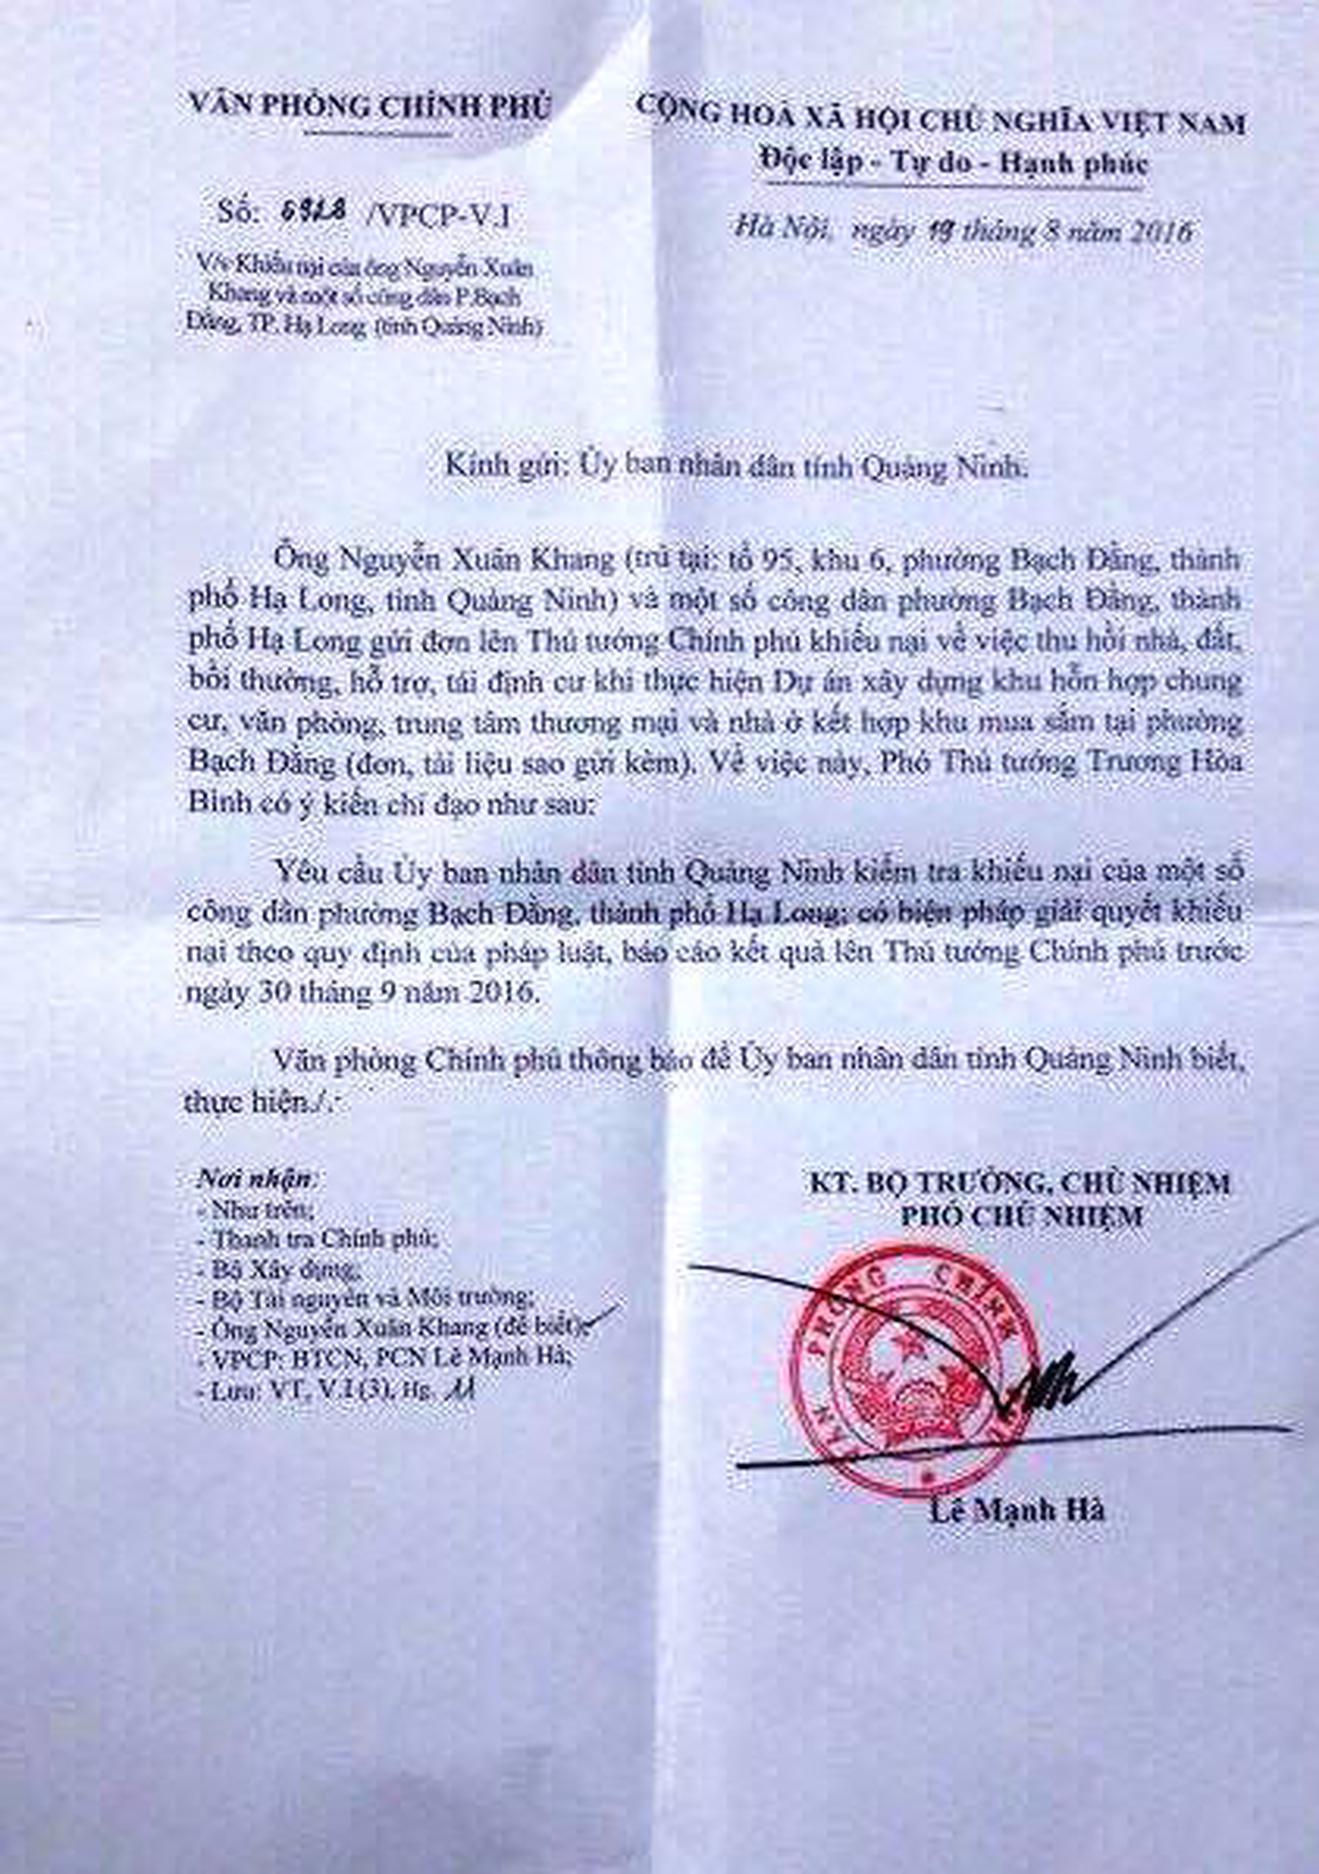 VĂN PHÒNG CHÍNH PHỦ
CỘNG HOÀ XÃ HỘI CHỦ NGHĨA VIỆT NAM
Độc lập - Tự do - Hạnh phúc
Số: /VPCP-V.I
Hà Nội, ngày 19 tháng 8 năm 2016
V/v Khiếu nại của ông Nguyễn Xuân
Khang và một số công dân P.Bạch
Đằng, TP. Hạ Long (tỉnh Quảng Ninh)
Kính gửi: Ủy ban nhân dân tỉnh Quảng Ninh.
Ông Nguyễn Xuân Khang (trú tại: tổ 95, khu 6, phường Bạch Đằng, thành
phố Hạ Long, tỉnh Quảng Ninh) và một số công dân phường Bạch Đằng, thành
phố Hạ Long gửi đơn lên Thủ tướng Chính phủ khiếu nại về việc thu hồi nhà, đất,
bồi thường, hỗ trợ, tái định cư khi thực hiện Dự án xây dựng khu hỗn hợp chung
cư, văn phòng, trung tâm thương mại và nhà ở kết hợp khu mua sắm tại phường
Bạch Đằng (đơn, tài liệu sao gửi kèm). Về việc này, Phó Thủ tướng Trương Hòa
Bình có ý kiến chỉ đạo như sau:
Yêu cầu Ủy ban nhân dân tỉnh Quảng Ninh kiểm tra khiếu nại của một số
công dân phường Bạch Đằng, thành phố Hạ Long; có biện pháp giải quyết khiếu
nại theo quy định của pháp luật, báo cáo kết quả lên Thủ tướng Chính phủ trước
ngày 30 tháng 9 năm 2016.
Văn phòng Chính phủ thông báo để Ủy ban nhân dân tỉnh Quảng Ninh biết,
thực hiện./.
Nơi nhận:
- Như trên;
- Thanh tra Chính phủ;
- Bộ Xây dựng;
- Bộ Tài nguyên và Môi trường;
- Ông Nguyễn Xuân Khang (để biết);
- VPCP: BTCN, PCN Lê Mạnh Hà;
- Lưu: VT, V.I (3), Hg. 11
KT. BỘ TRƯỞNG, CHỦ NHIỆM
PHÓ CHỦ NHIỆM
VĂN PHÒNG CHÍNH PHỦ
Lê Mạnh Hà